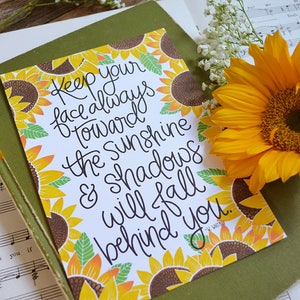 Keep your
face always
toward
the sunshine
& shadows
will fall
behind you.